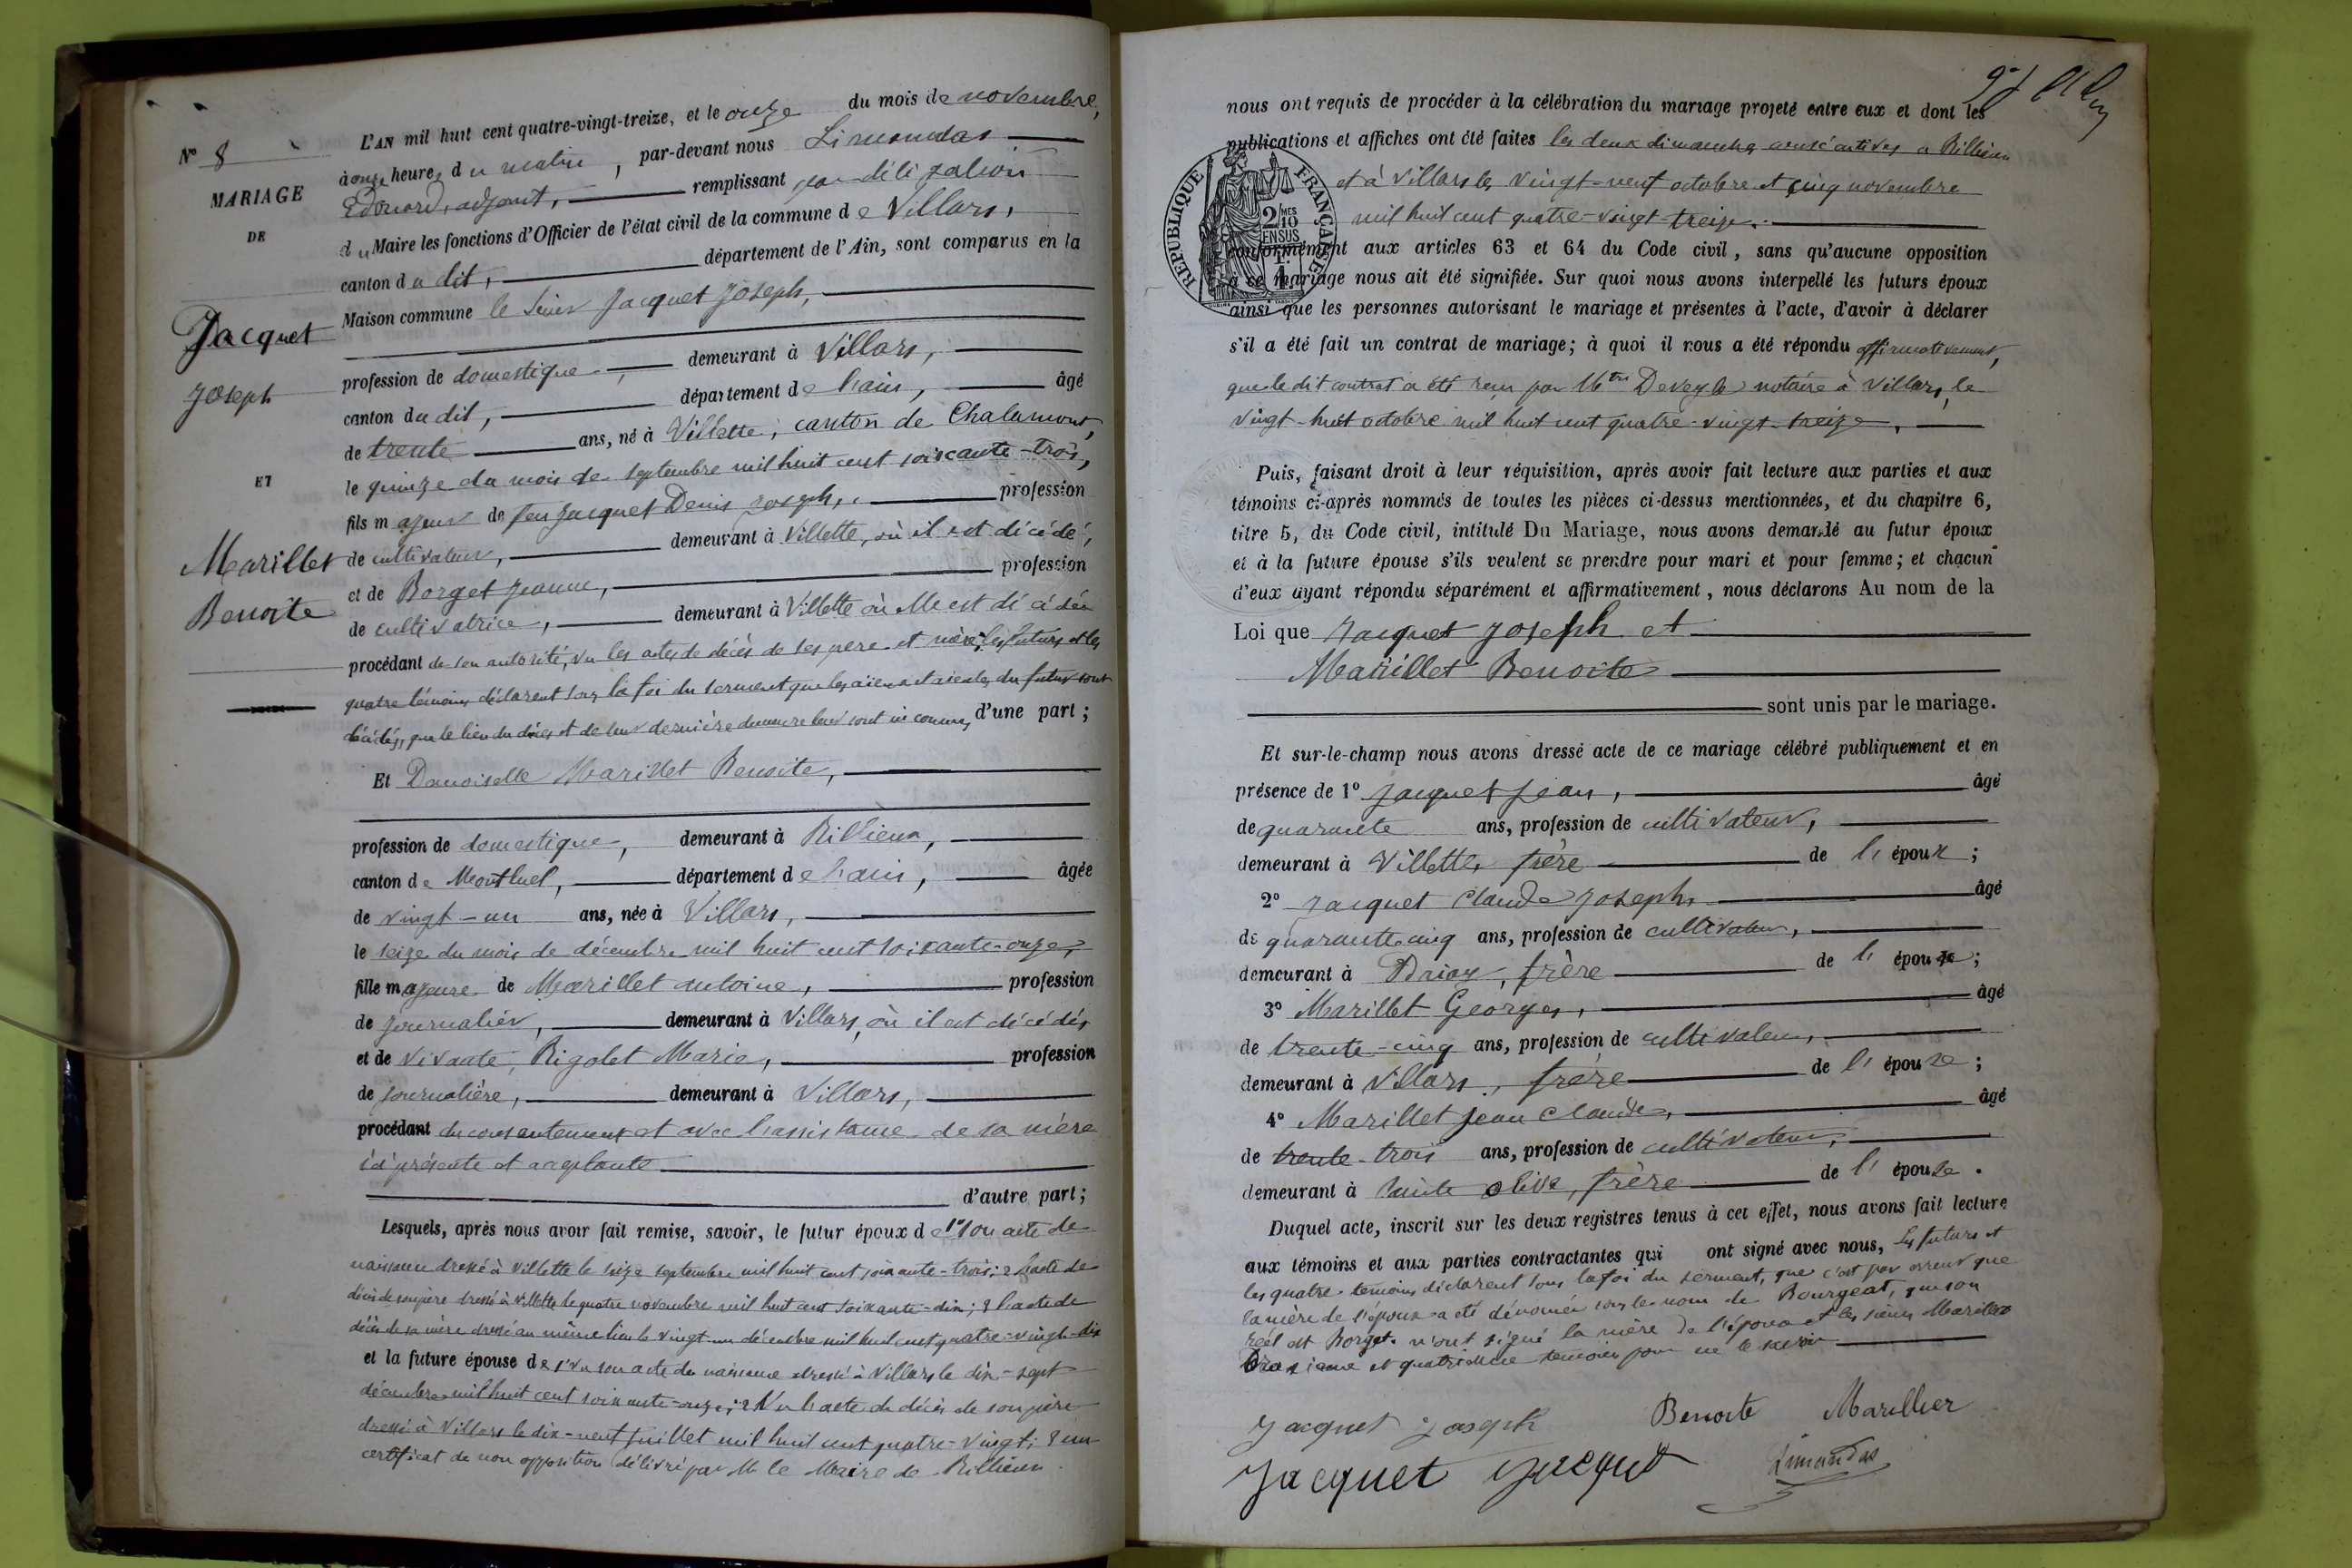 N° 8
MARIAGE
DE
Jacquet
Joseph
ET
Marillet
Benoite
L'AN mil huit cent quatre-vingt-treize, et le onze du mois de novembre,
à onze heures du matin, par-devant nous Limandas
Edouard, adjoint, remplissant par délégation
du Maire les fonctions d'Officier de l'état civil de la commune de Villars,
canton du dit, département de l'Ain, sont comparus en la
Maison commune le sieur Jacquet Joseph,
profession de domestique, demeurant à Villars,
canton du dit, département de l'ain, âgé
de trente ans, né à Villette, canton de Chalamont,
le quinze du mois de septembre mil huit cent soixante-trois,
fils majeur de feu Jacquet Denis Joseph, profession
de cultivateur, demeurant à Villette, où il est décédé,
et de Borget Jeanne, profession
de cultivatrice, demeurant à Villette où elle est décédée
procédant de son autorité, vu les actes de décès de ses père et mère; les futurs et les
quatre témoins déclarent sous la foi du serment que les aïeux et aïeules du futur sont
décédés, que le lieu du décès et de leur dernière demeure leur sont inconnus, d'une part;
Et Demoiselle Marillet Benoite,
profession de domestique, demeurant à Rillieux,
canton de Montluel, département de l'ain, âgée
de vingt-un ans, née à Villars,
le seize du mois de décembre mil huit cent soixante-onze,
fille majeure de Marillet antoine, profession
de journalier, demeurant à Villars, où il est décédé,
et de vivante, Rigolet Marie, profession
de journalière, demeurant à Villars,
procédant du consentement et avec l'assistance de sa mère
ici présente et acceptante
d'autre part;
Lesquels, après nous avoir fait remise, savoir, le futur époux de 1° son acte de
naissance dressé à Villette le seize septembre mil huit cent soixante-trois; 2° l'acte de
décès de son père dressé à Villette le quatre novembre mil huit cent soixante-dix; 3° l'acte de
décès de sa mère dressé au même lieu le vingt-un décembre mil huit cent quatre-vingt-dix
et la future épouse de 1° Vu son acte de naissance dressé à Villars le dix-sept
décembre mil huit cent soixante-onze; 2° Vu l'acte de décès de son père
dressé à Villars le dix-neuf juillet mil huit cent quatre-vingt; 3° un
certificat de non opposition délivré par M. le Maire de Rillieux.
nous ont requis de procéder à la célébration du mariage projeté entre eux et dont les
publications et affiches ont été faites les deux dimanches consécutives a Rillieux
et à Villars les vingt-neuf octobre et cinq novembre
mil huit cent quatre-vingt-treize.
REPUBLIQUE FRANÇAISE
2/10 MES
EN SUS
conformément aux articles 63 et 64 du Code civil, sans qu'aucune opposition
à ce mariage nous ait été signifiée. Sur quoi nous avons interpellé les futurs époux
ainsi que les personnes autorisant le mariage et présentes à l'acte, d'avoir à déclarer
s'il a été fait un contrat de mariage; à quoi il nous a été répondu affirmativement,
que le dit contrat a été reçu par Mtre Deveyle notaire à Villars, le
vingt-huit octobre mil huit cent quatre-vingt-treize,
Puis, faisant droit à leur réquisition, après avoir fait lecture aux parties et aux
témoins ci-après nommés de toutes les pièces ci-dessus mentionnées, et du chapitre 6,
titre 5, du Code civil, intitulé Du Mariage, nous avons demandé au futur époux
et à la future épouse s'ils veulent se prendre pour mari et pour femme; et chacun
d'eux ayant répondu séparément et affirmativement, nous déclarons Au nom de la
Loi que Jacquet Joseph et
Marillet Benoite
sont unis par le mariage.
Et sur-le-champ nous avons dressé acte de ce mariage célébré publiquement et en
présence de 1° Jacquet Jean, âgé
de quarante ans, profession de cultivateur,
demeurant à Villette, frère de l' époux;
2° Jacquet Claude Joseph, âgé
de quarante-cinq ans, profession de cultivateur,
demeurant à frère de l' époux;
3° Marillet Georges, âgé
de trente-cinq ans, profession de cultivateur,
demeurant à Villars, frère de l' épouse;
4° Marillet Jean Claude, âgé
de trente-trois ans, profession de cultivateur,
demeurant à Sainte olive, frère de l' épouse.
Duquel acte, inscrit sur les deux registres tenus à cet effet, nous avons fait lecture
aux témoins et aux parties contractantes qui ont signé avec nous, Les futurs et
les quatre témoins déclarent sous la foi du serment, que c'est par erreur que
la mère de l'époux a été dénomée sous le nom de Bourgeat, que son
réel est Borget. n'ont signé la mère de l'épouse et les sieurs Marillet
troisième et quatrième témoins pour ne le savoir
Jacquet Joseph Benoite Marillier
Jacquet Jacquet Limandas